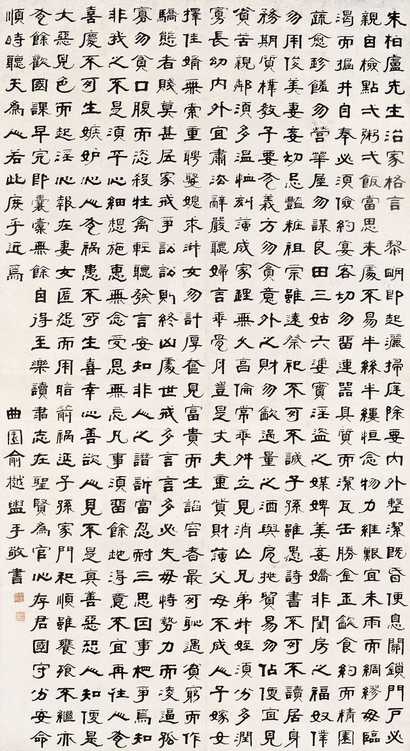 朱柏廬先生治家格言 黎明即起灑掃庭除要內外整潔既昏便息關鎖門戶必
親自檢點一粥一飯當思來處不易半絲半縷恒念物力維艱宜未雨而綢繆毋臨
渴而掘井自奉必須儉約宴客切勿留連器具質而潔瓦缶勝金玉飲食約而精園
蔬愈珍饈勿營華屋勿謀良田三姑六婆實淫盜之媒婢美妾嬌非閨房之福奴僕
勿用俊美妻妾切忌艷粧祖宗雖遠祭祀不可不誠子孫雖愚詩書不可不讀居身
務期質樸教子要有義方勿貪意外之財勿飲過量之酒與肩挑貿易勿佔便宜見
貧苦親鄰須多溫恤刻薄成家理無久享倫常乖舛立見消亡兄弟叔姪須分多潤
寡長幼內外宜肅法辭嚴聽婦言乖骨肉豈是丈夫重貲財薄父母不成人子嫁女
擇佳婿無索重聘娶媳求淑女勿計厚奩見富貴而生諂容者最可恥遇貧窮而作
驕態者賤莫甚居家戒爭訟訟則終凶處世戒多言言多必失毋恃勢力而凌逼孤
寡勿貪口腹而恣殺牲禽輕聽發言安知非人之譖訴當忍耐三思因事相爭焉知
非我之不是須平心細想施惠無念受恩無忘凡事須留餘地得意不宜再往人有
喜慶不可生嫉妒心人有禍患不可生喜幸心善欲人見不是真善惡恐人知便是
大惡見色而起淫心報在妻女匿怨而用暗箭禍延子孫家門和順雖饔飧不繼亦
有餘歡國課早完即囊橐無餘自得至樂讀書志在聖賢為官心存君國守分安命
順時聽天為人若此庶乎近焉
曲園俞樾盥手敬書